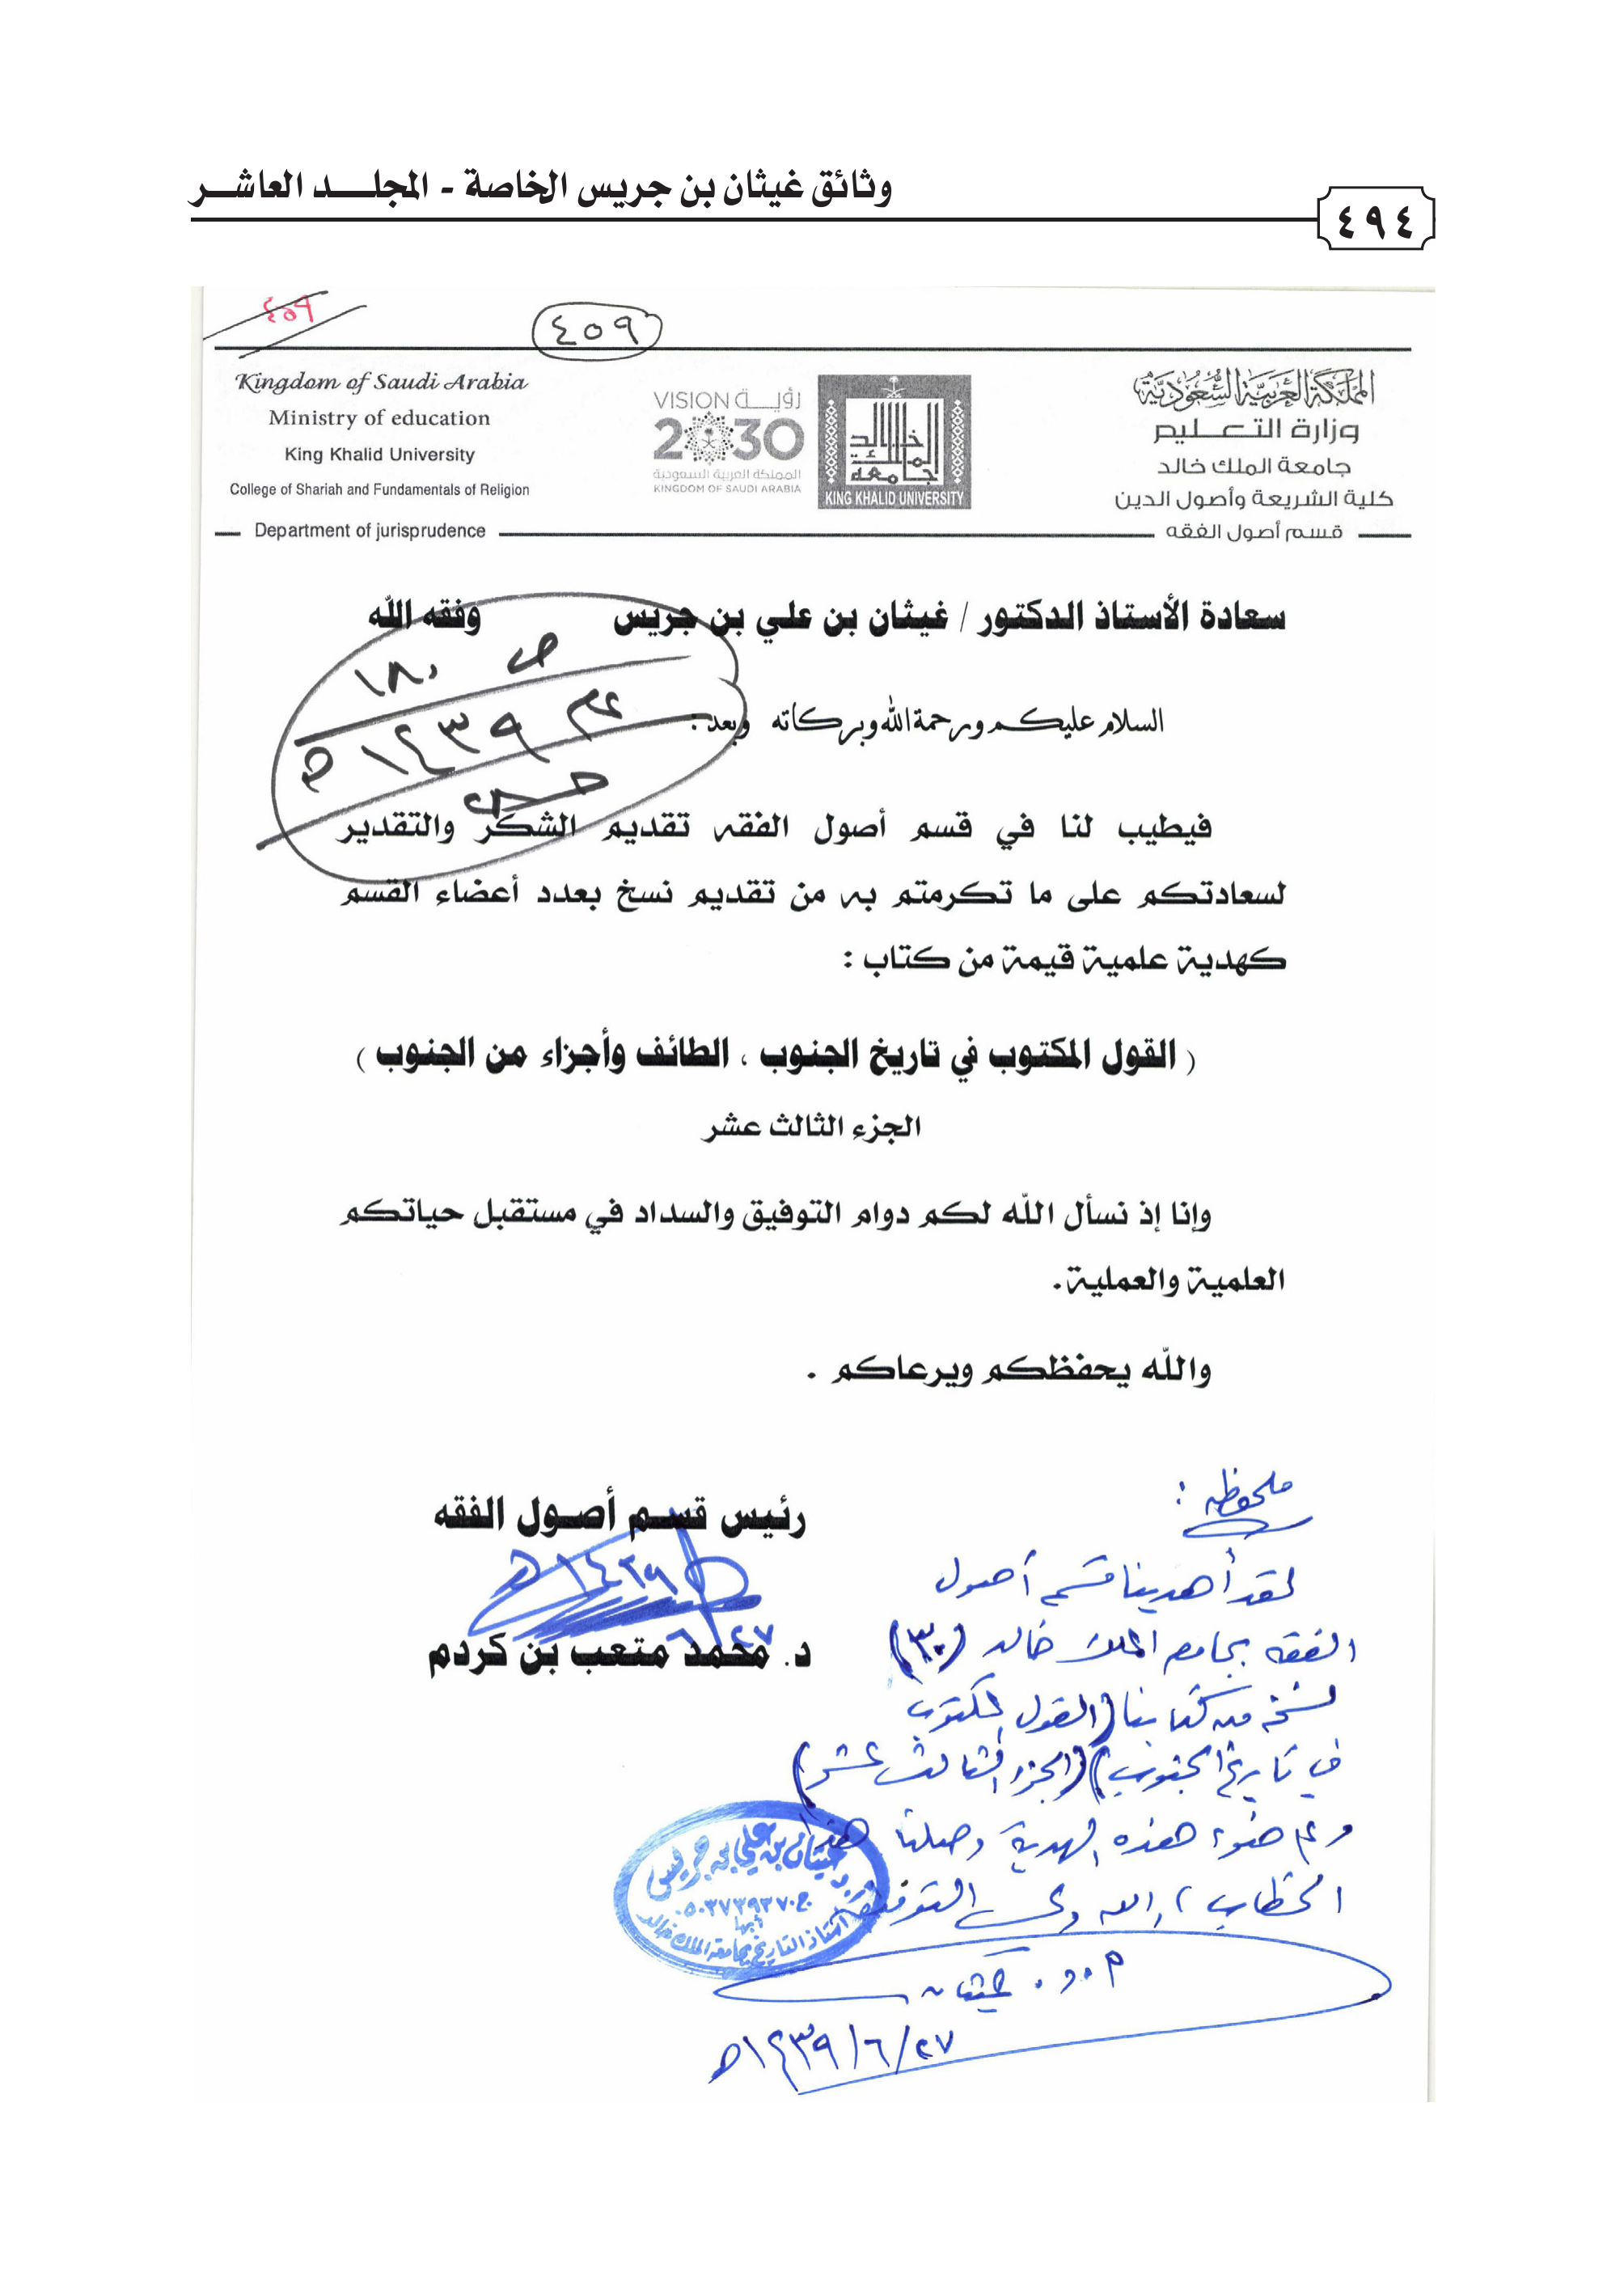 وثائق غيثان بن جريس الخاصة - المجلد العاشر
٤٩٤
٤٥٩
٤٥٩
المملكة العربية السعودية
وزارة التعليم
جامعة الملك خالد
كلية الشريعة وأصول الدين
قسم أصول الفقه
خالد
الملك
جامعة
KING KHALID UNIVERSITY
VISION رؤية
2030
المملكة العربية السعودية
KINGDOM OF SAUDI ARABIA
Kingdom of Saudi Arabia
Ministry of education
King Khalid University
College of Shariah and Fundamentals of Religion
Department of jurisprudence
سعادة الأستاذ الدكتور / غيثان بن علي بن جريس وفقه الله
ص ١٨٠
عام ١٤٣٩هـ
السلام عليكم ورحمة الله وبركاته وبعد :
فيطيب لنا في قسم أصول الفقه تقديم الشكر والتقدير
لسعادتكم على ما تكرمتم به من تقديم نسخ بعدد أعضاء القسم
كهدية علمية قيمة من كتاب :
( القول المكتوب في تاريخ الجنوب ، الطائف وأجزاء من الجنوب )
الجزء الثالث عشر
وإنا إذ نسأل الله لكم دوام التوفيق والسداد في مستقبل حياتكم
العلمية والعملية.
والله يحفظكم ويرعاكم .
رئيس قسم أصول الفقه
١٤٣٩هـ
٦/٢٧
د. محمد متعب بن كردم
ملحوظة :
لقد أهدينا قسم أصول
الفقه بجامعة الملك خالد (٣٠)
نسخة من كتابنا (القول المكتوب
في تاريخ الجنوب) (الجزء الثالث عشر)
وعلى ضوء هذه الهدية وصلنا هذا
الخطاب ، والله ولي التوفيق
أ.د. غيثان بن علي بن جريس
ج ٠٥٠٣٧٣٩٣٧٠
أبها
أستاذ التاريخ بجامعة الملك خالد
أ.د. غيثان
٢٧/٦/١٤٣٩هـ